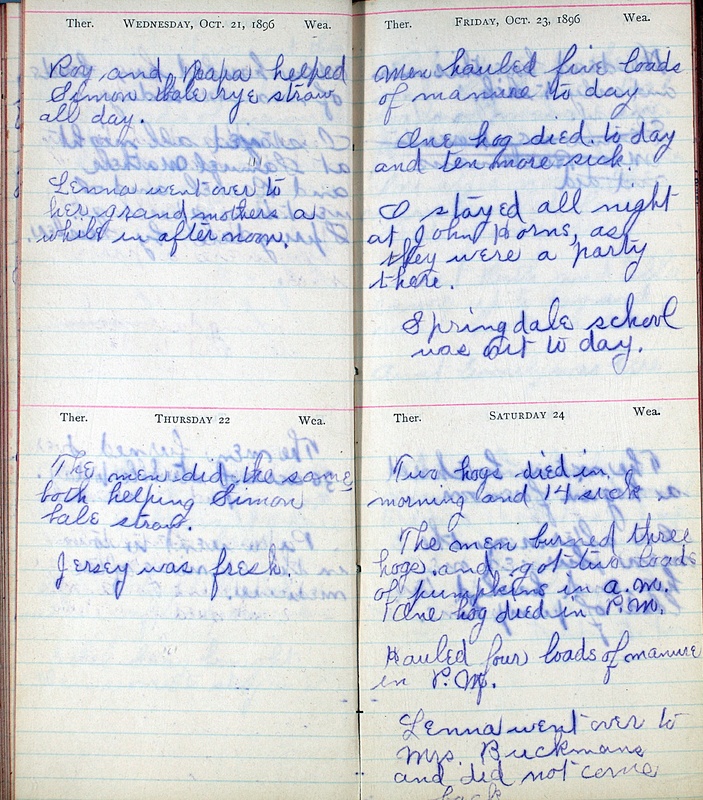 Ther. WEDNESDAY, OCT. 21, 1896 Wea.
Roy and Papa helped
Simon bale rye straw
all day.
Lenna went over to
her grand mothers a
while in afternoon.
Ther. THURSDAY 22 Wea.
The men did the same
both helping Simon
bale straw.
Jersey was fresh.
Ther. FRIDAY, OCT. 23, 1896 Wea.
Men hauled five loads
of manure to day
One hog died to day
and ten more sick.
I stayed all night
at John Horns, as
they were a party
there.
Springdale school
was out to day.
Ther. SATURDAY 24 Wea.
Two hogs died in
morning and 14 sick
The men burned three
hogs and got two loads
of pumpkins in a.m.
One hog died in P.M.
Hauled four loads of manure
in P.M.
Lenna went over to
Mrs. Buckmans
and did not come
back